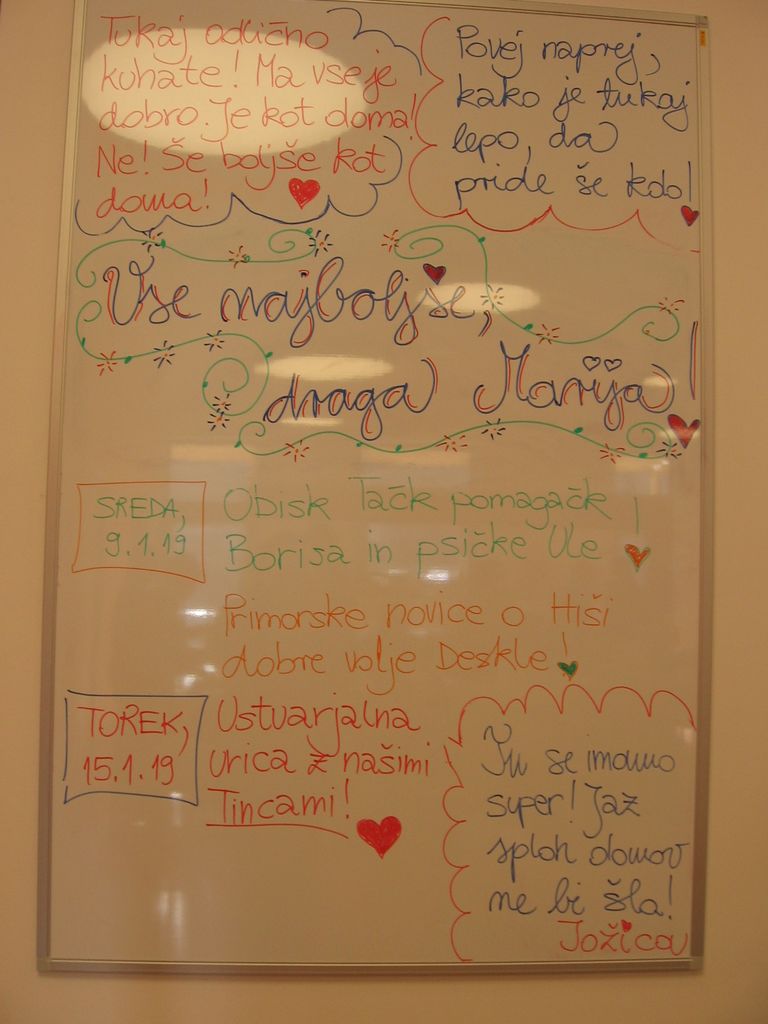 Tukaj odlično
kuhate! Ma vse je
dobro. Je kot doma!
Ne! Še boljše kot
doma!
Povej naprej,
kako je tukaj
lepo, da
pride še kdo!
Vse najboljše,
draga Marija!
SREDA,
9.1.19
Obisk Tačk pomagačk
Borisa in psičke Ule!
Primorske novice o Hiši
dobre volje Deskle!
TOREK,
15.1.19
Ustvarjalna
urica z našimi
Tincami!
Tu se imamo
super! Jaz
sploh domov
ne bi šla!
Jožica